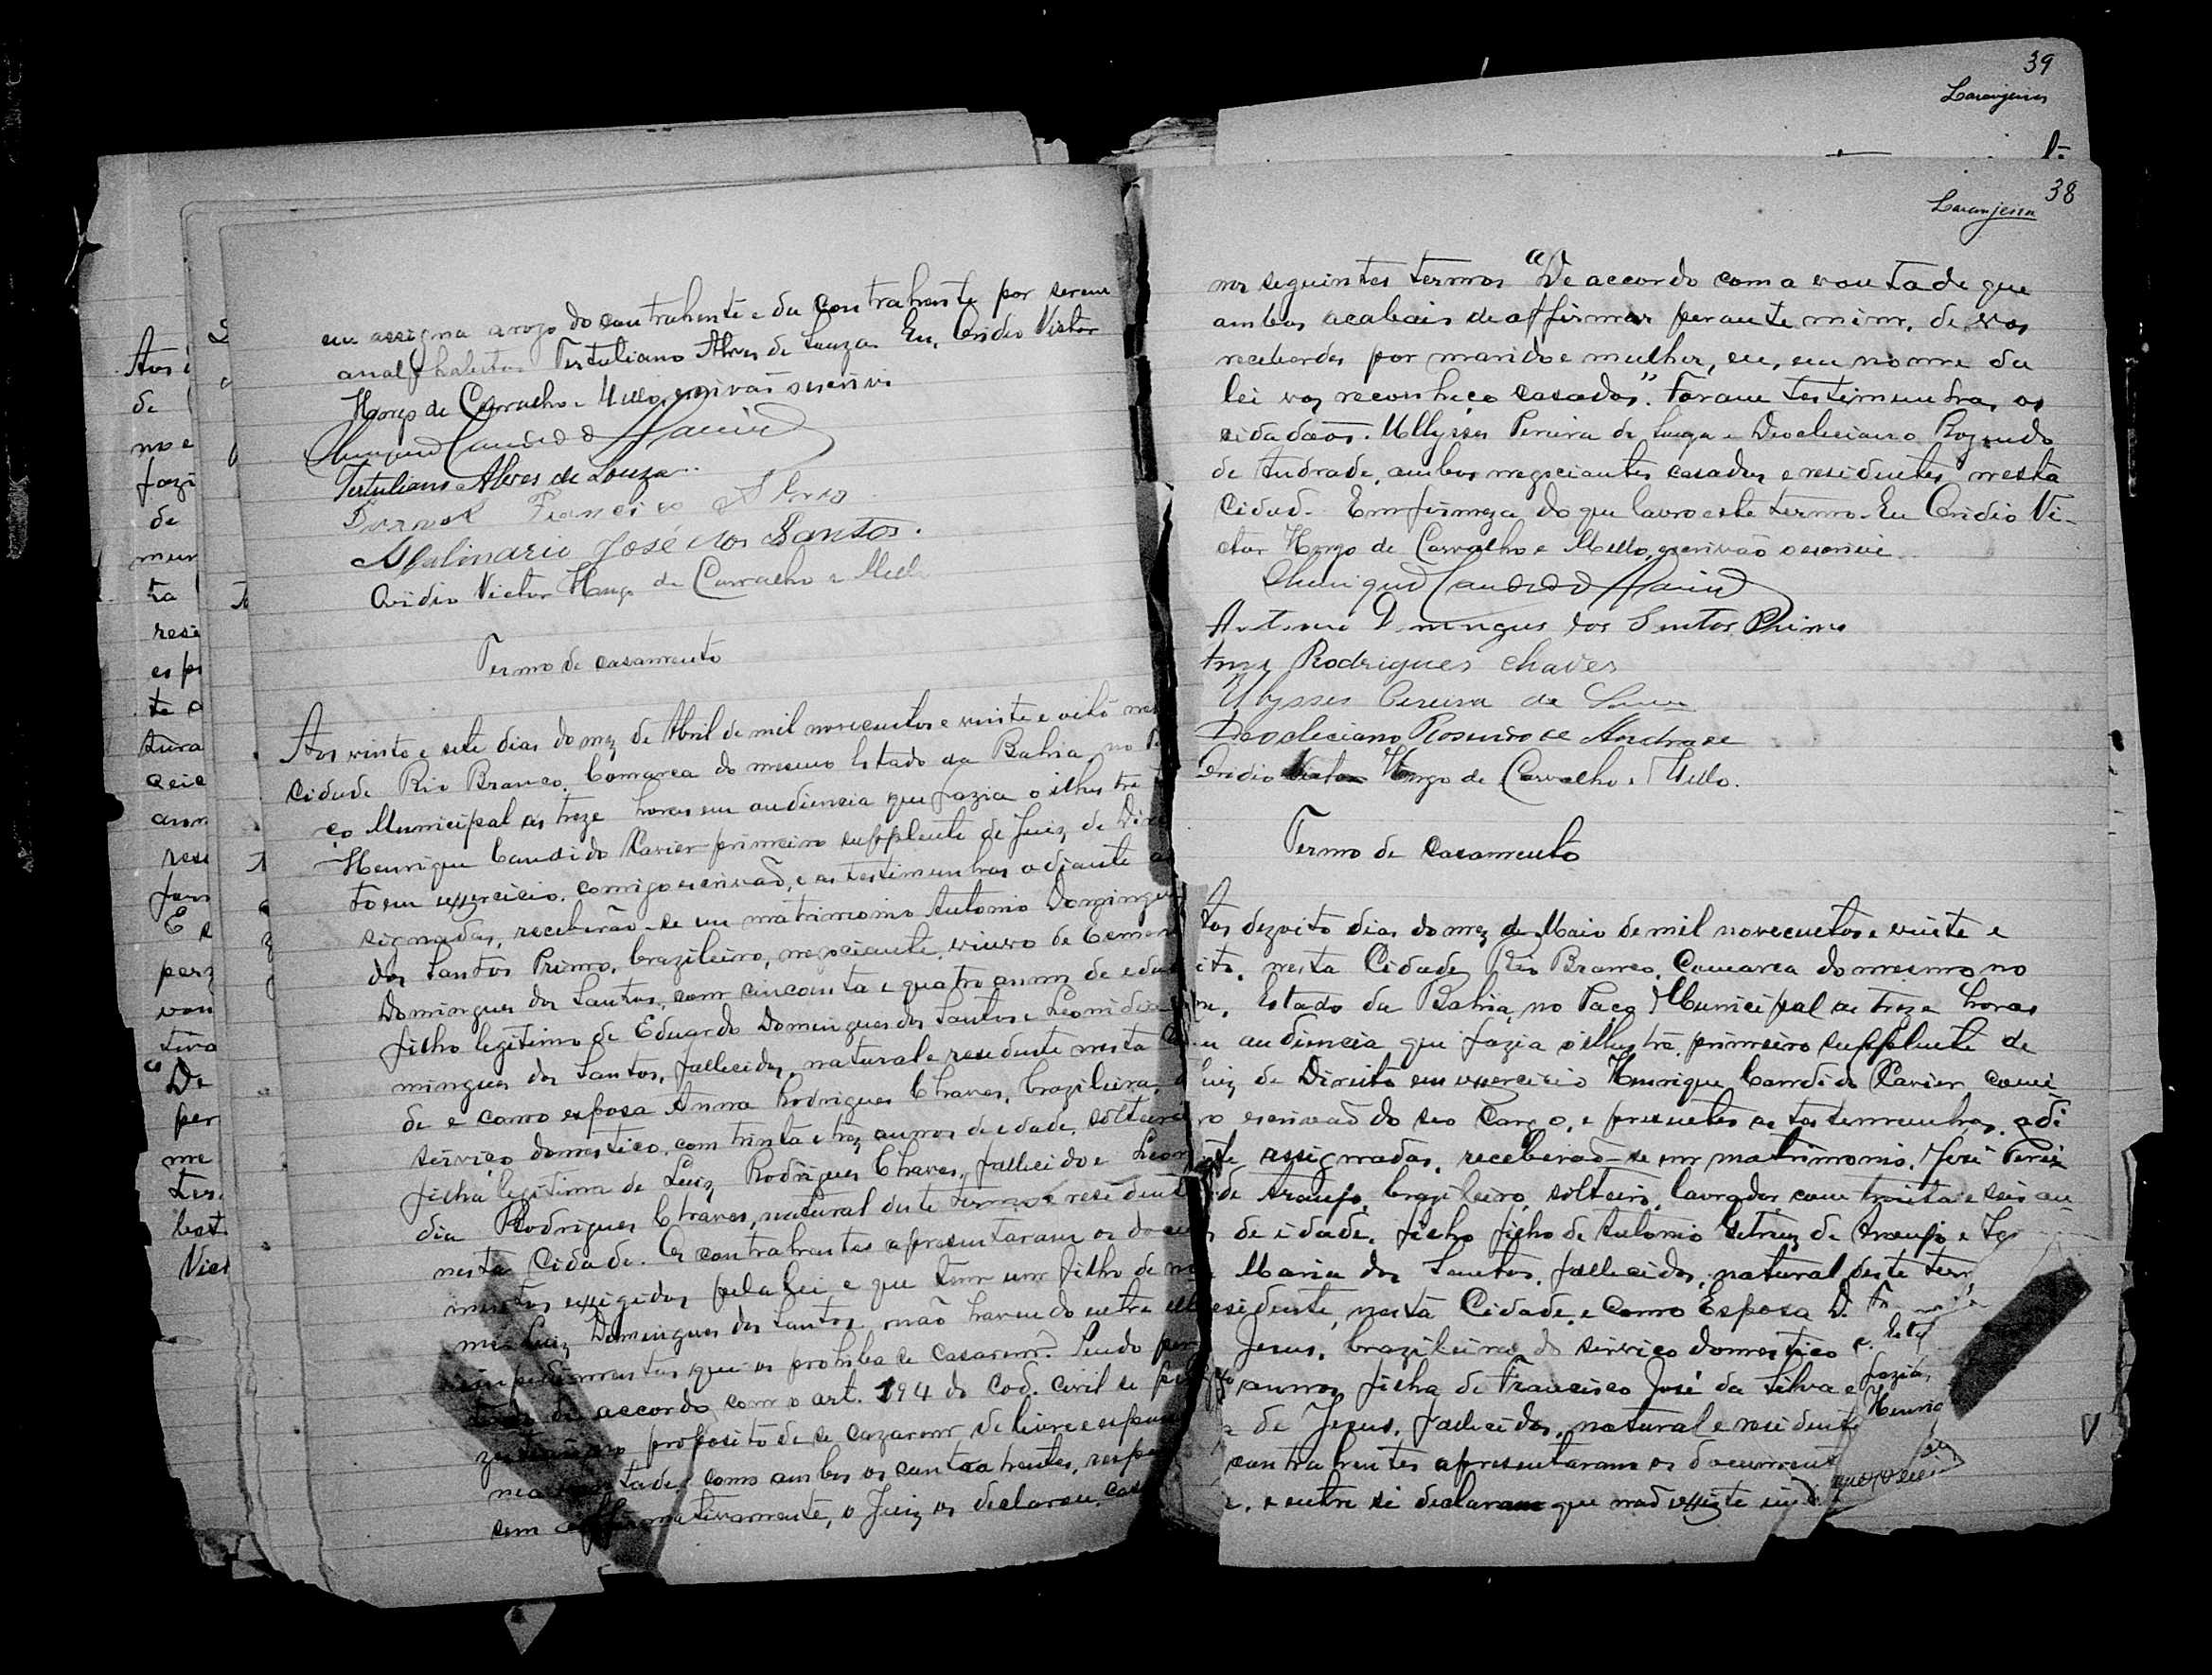 em assigna a rogo do contrahente e da contrahente por serem
analphabetos Tertuliano Alves de Souza Eu, Ovidio Victor
Hugo de Carvalho e Mello, escrivão o escrivi
Tertuliano Alves de Souza
Francisco
José dos Santos.
Ovidio Victor Hugo de Carvalho e Mello
Termo de casamento
Aos vinte e sete dias do mez de Abril de mil novecentos e vinte e oito nes
cidade Rio Branco, Comarca do mesmo Estado da Bahia, no Pa
ço Municipal as treze horas em audiencia que fazia o illustre
Henrique Candido Xavier primeiro supplente de Juiz de Direi
to em exercicio, comigo escrivão, e as testimunhas adiante as
signadas, receberão-se em matrimonio Antonio Domingues
dos Santos Primo, brazileiro, negociante, viuvo de
Domingues dos Santos, com cincoenta e quatro annos de edade
filho legitimo de Eduardo Domingues dos Santos e Leonidia Do
mingues dos Santos, fallecidos, natural e residente nesta Cida
de e como esposa Anna Rodrigues Chaves, brazileira, d
serviço domestico, com trinta e trez annos de edade, solteira
filha legitima de Luiz Rodrigues Chaves, fallecido e Leoni
dia Rodrigues Chaves, natural deste termo e residente
nesta Cidade. Os contrahentes apresentaram os docu
mentos exigidos pela lei e que tem um filho de no
me Luiz Domingues dos Santos não havendo entre elles
impedimentos que os prohiba de casarem. Sendo per
de accordo com o art. 194 do Cod. Civil se
proposito de se cazarem de livre e espon
vontade como ambos os contrahentes, respon
sem affirmativamente, o Juiz os declarou casa
39
Laranjeira
38
Laranjeira
nos seguintes termos "De accordo com a vontade que
ambos acabais de affirmar perante mim, de vos
receberdes por marido e mulher, eu, em nome da
lei vos reconheço casados". Foram testimunhas os
cidadãos Ullysses Pereira de Souza e Deocleciano Rozendo
de Andrade, ambos negociantes casados e residentes nesta
Cidade. Em firmeza do que lavro este termo. Eu Ovidio Vi-
ctor Hugo de Carvalho e Mello, escrivão o escrivi
Henrique Candido Xavier
Antonio Domingues dos Santos Primo
Anna Rodrigues Chaves
Ulysses Pereira de Souza
Deocleciano Rosendo de Andrade
Ovidio Victor Hugo de Carvalho e Mello.
Termo de casamento
Aos dezoito dias do mez de Maio de mil novecentos e vinte e
oito, nesta Cidade Rio Branco, Comarca do mesmo no
me, Estado da Bahia, no Paço Municipal as treze horas
em audiencia que fazia o illustre primeiro supplente de
Juiz de Direito em exercicio Henrique Candido Xavier comi
go escrivão do seo cargo, e presentes as testemunhas, adi
ante assignadas, receberão-se em matrimonio, José
de Araujo, brazileiro, solteiro, lavrador, com trinta e seis an
s de idade, filho filho de Antonio de Araujo e
Maria dos Santos, fallecidos, natural deste ter
esidente, nesta Cidade, e como Esposa D.
Jesus, brazileira do serviço domestico
annos filha de Francisco José da Silva e
de Jesus, fallecidos, natural e residente
contrahentes apresentaram os document
e, e entre si declaram que não existe
fazia
Henriq
Aos
de
no e
fazi
de
mun
ta
resi
esp
te
tura
ceic
ann
resi
fare
E
perg
von
tiva
"De
per
me
tes
bot
Vict